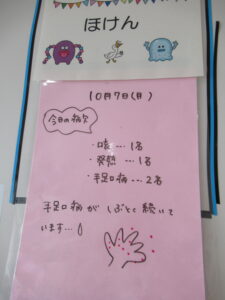 ほけん
10月7日(月)
今日の病欠
・咳…1名
・発熱…1名
・手足口病…2名
手足口病がしぶとく続いて
います…